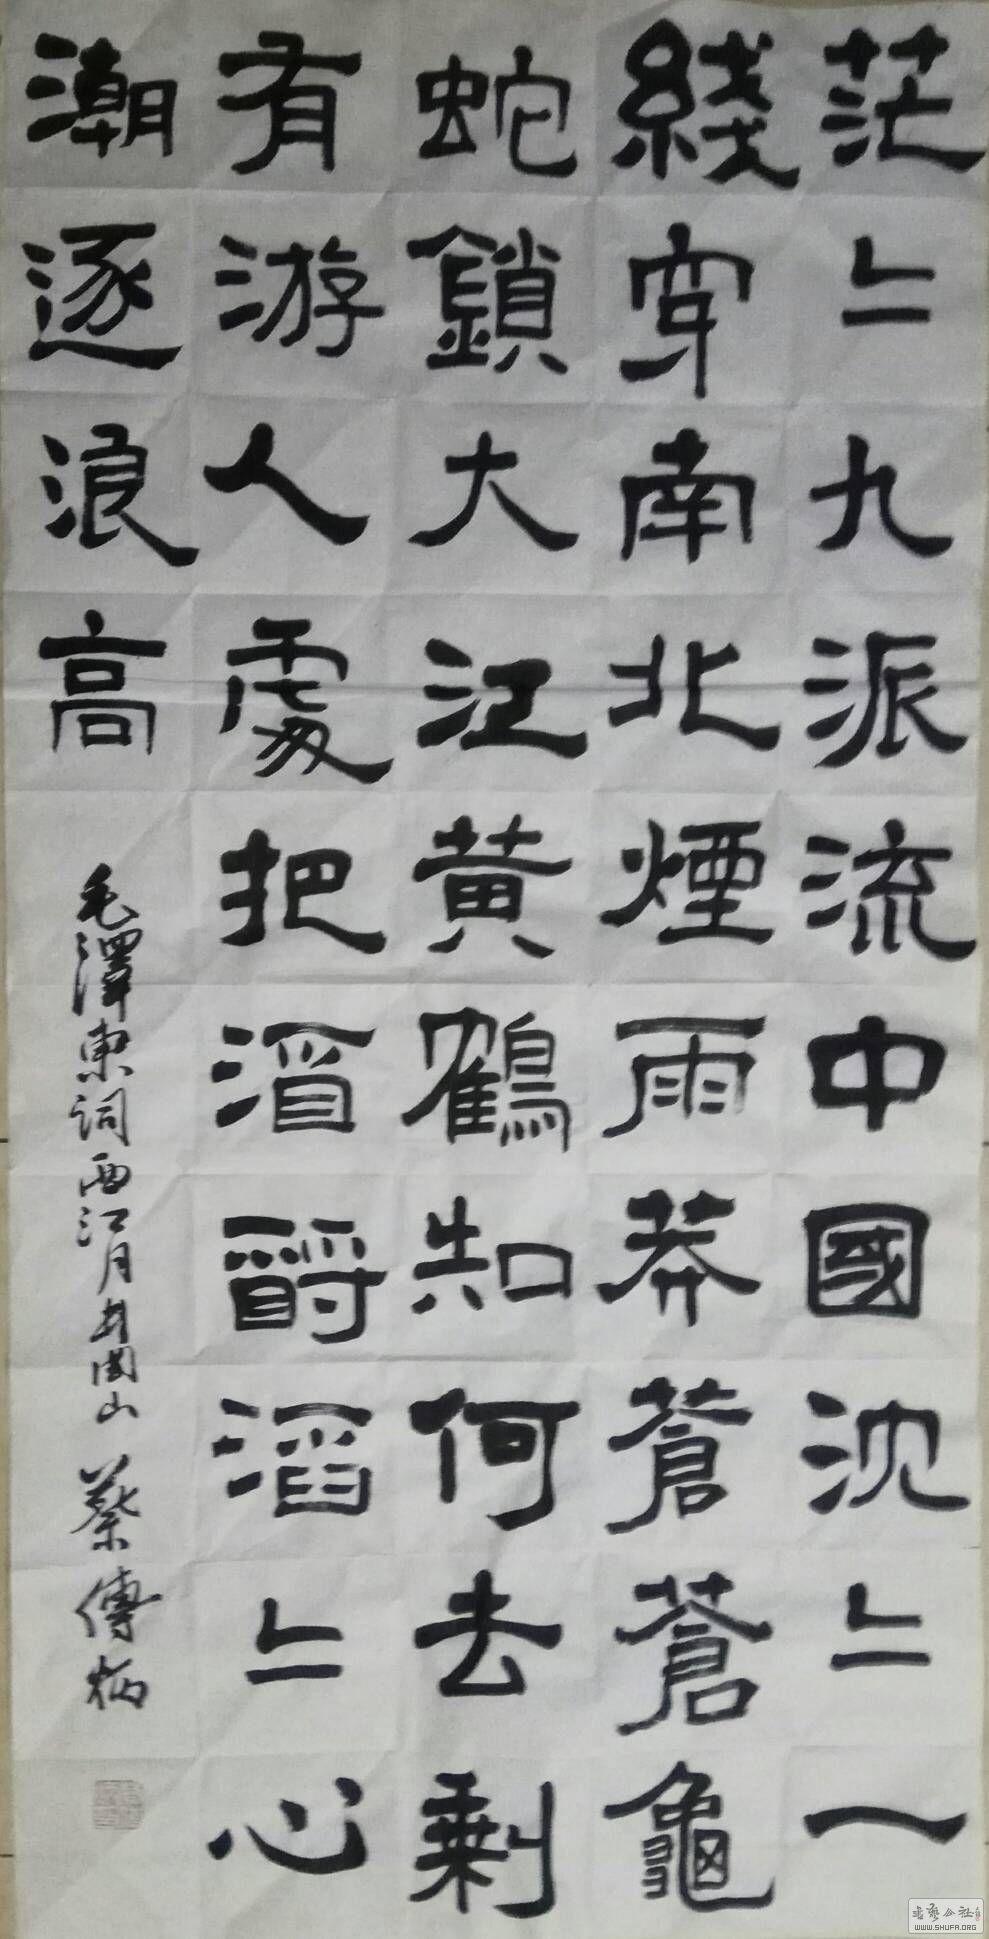 茫〻九派流中國沈〻一
綫穿南北煙雨莽蒼蒼龜
蛇鎖大江黃鶴知何去剩
有游人處把酒酹滔〻心
潮逐浪高
毛澤東词西江月井岡山 蔡傳炳
书艺公社
WWW.SHUFA.ORG